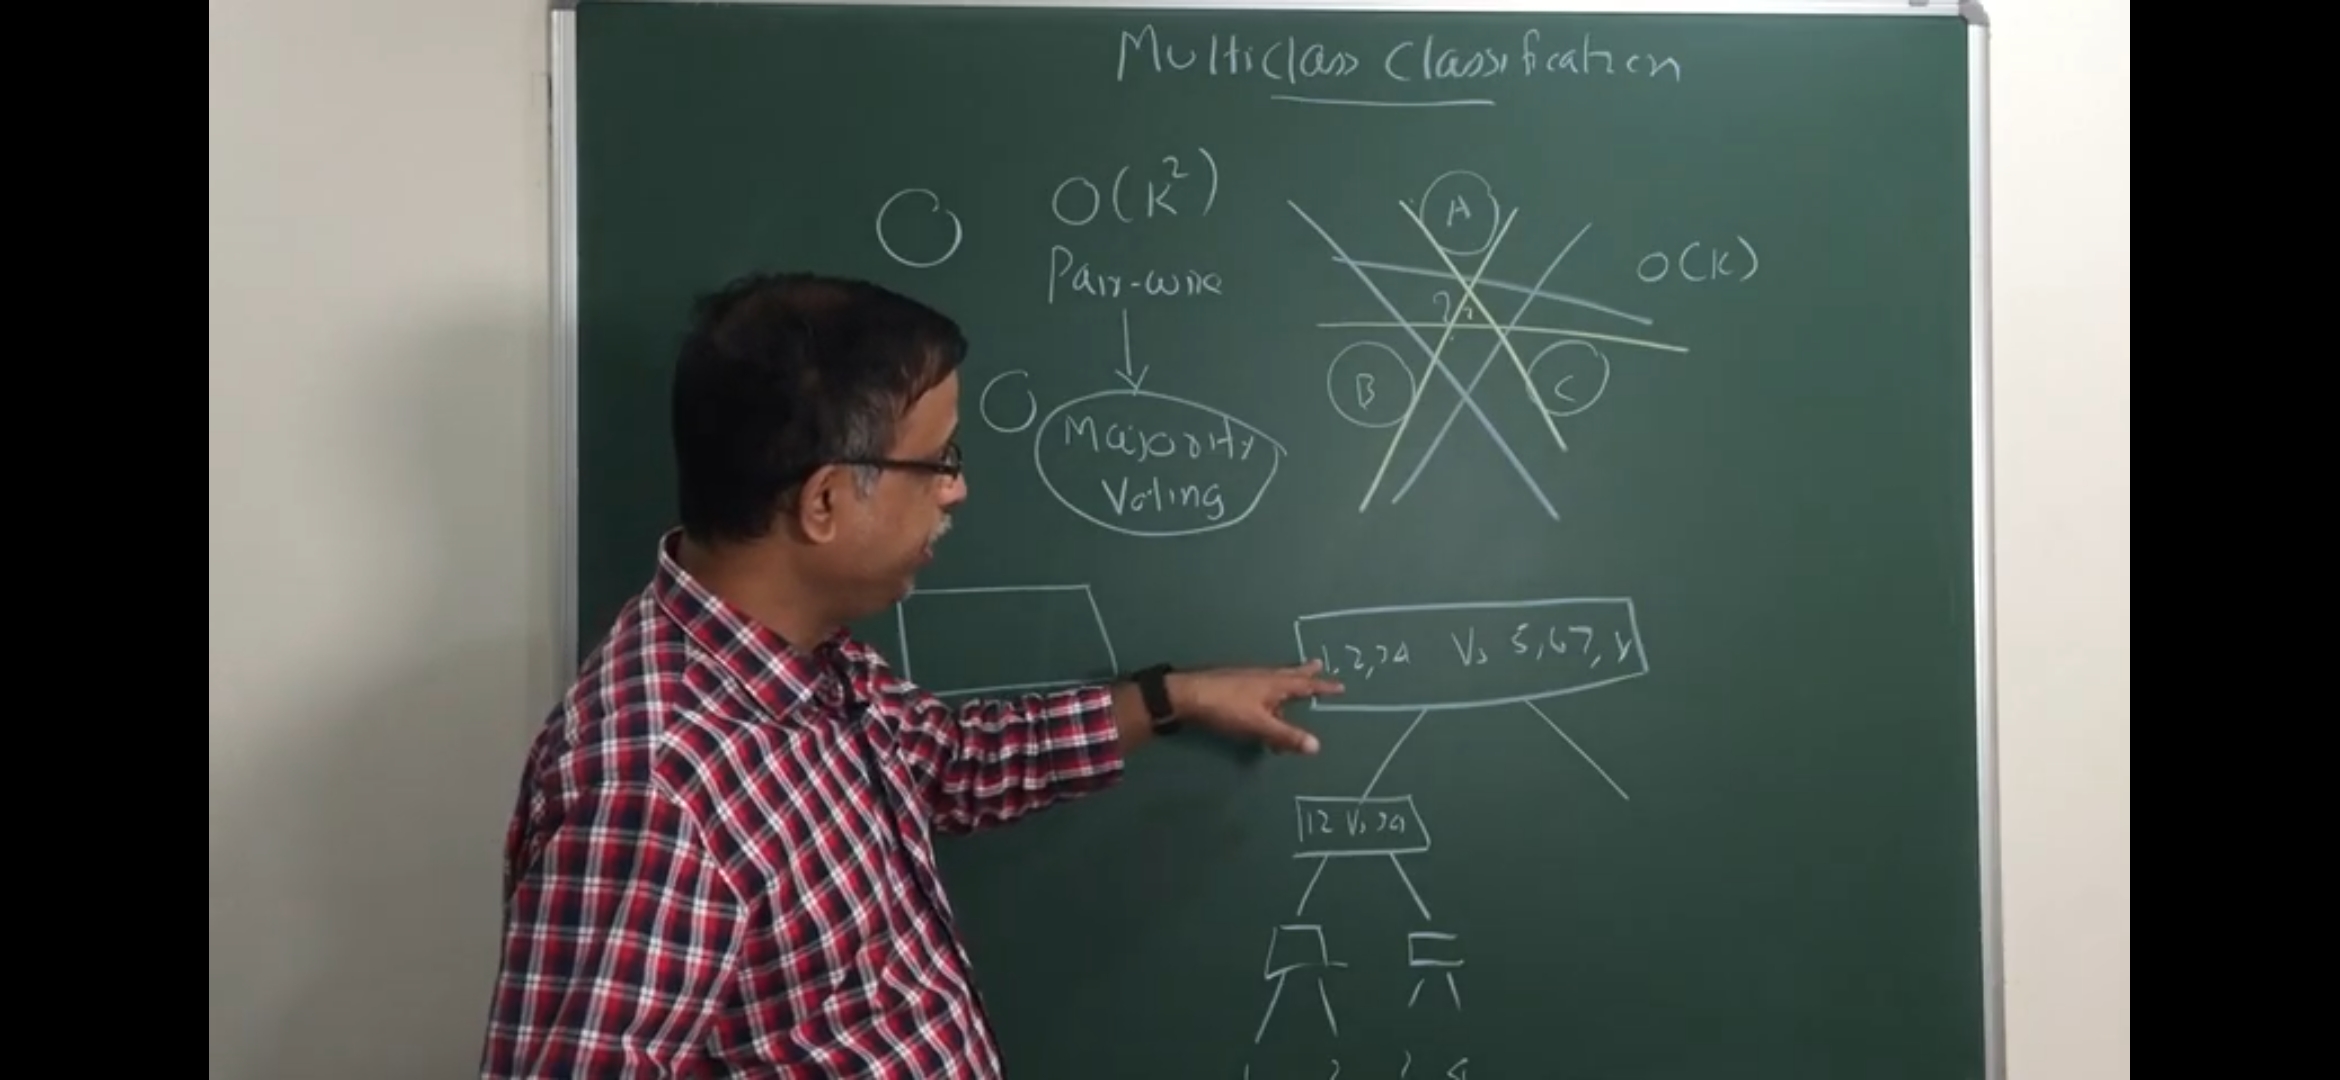 Multiclass Classification
O(K²)
Pair-wise
Majority
Voting
A
O(K)
??
B
C
1,2,34 Vs 5,67,8
12 Vs 34
1 2 3 4